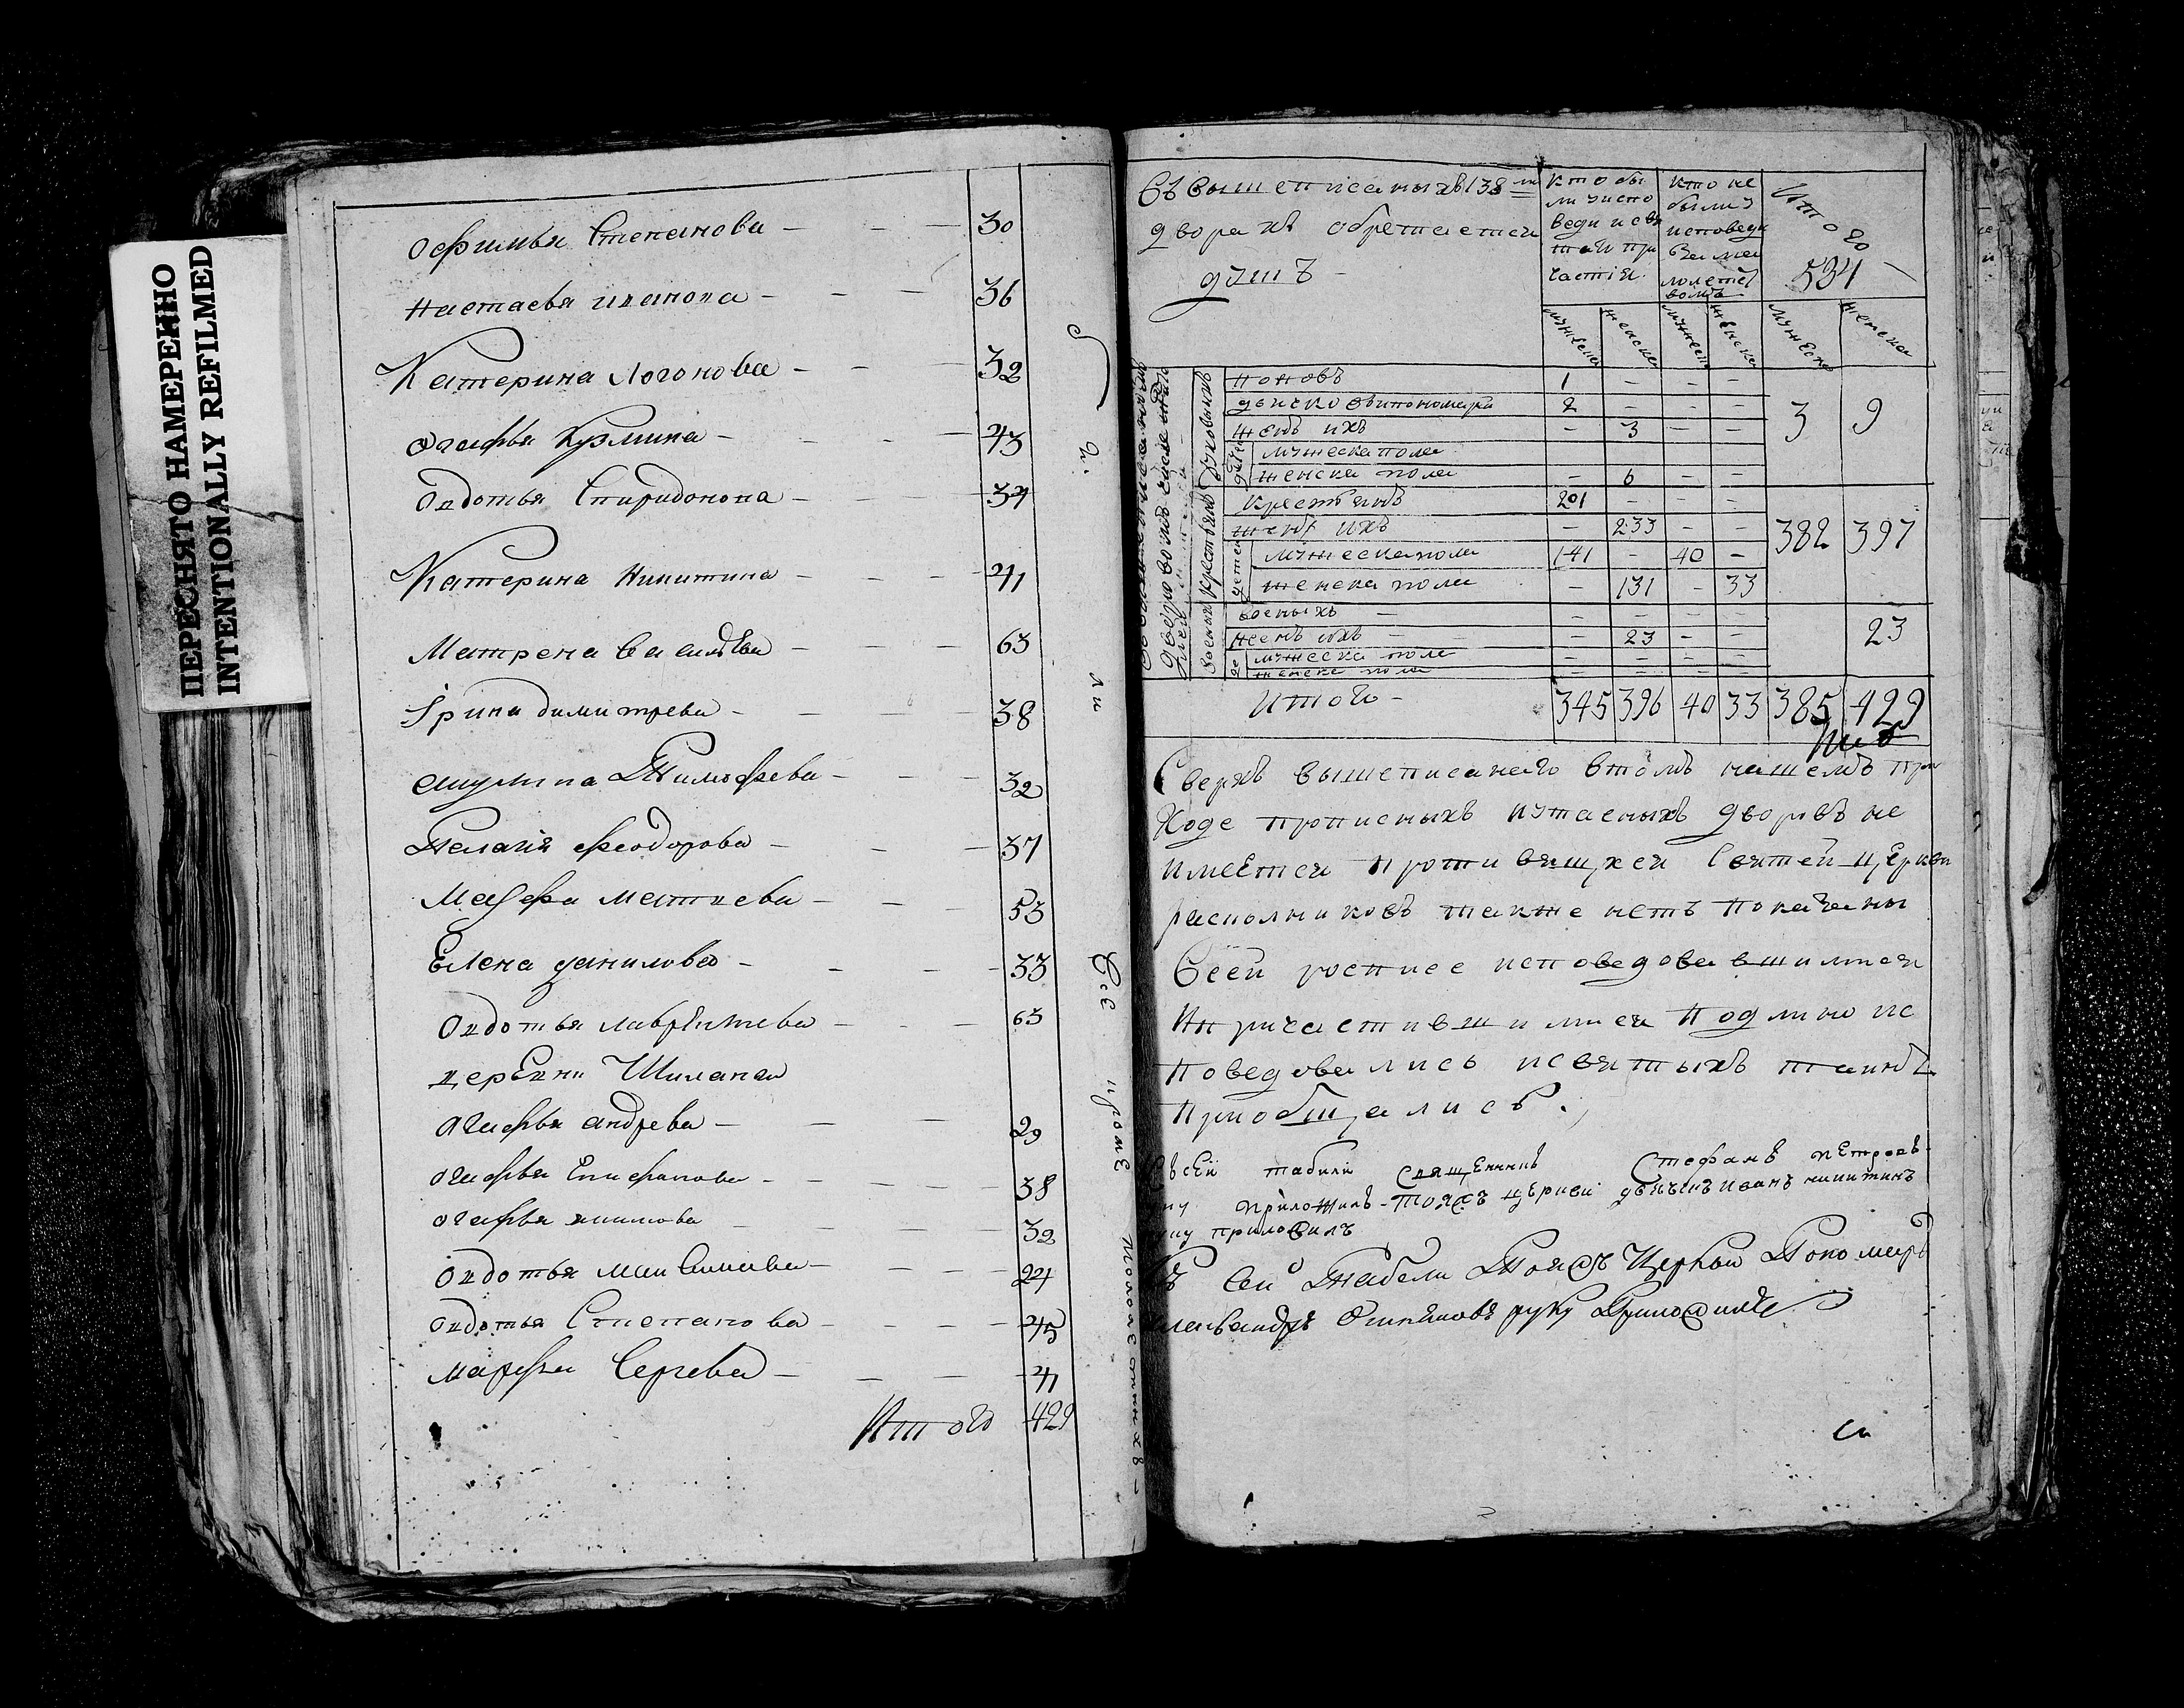 ПЕРЕСНЯТО НАМЕРЕННО
INTENTIONALLY REFILMED
Офимья Степанова — 30
Настасья иванова — 36
Катерина Логонова — 32
Огафья Кузмина — 43
Овдотья Спиридонова — 37
Катерина Никитина — 41
Матрена Василева — 63
Їрина димитрева — 38
акулина Тимофева — 32
Пелагия феодорова — 37
Марфа Матвева — 53
Елена данилова — 33
Овдотья лаврентева — 63
деревни
Агафья андрева — 29
огафья Епифанова — 38
огафья якимова — 32
Овдотья максимова — 24
овдотья Степанова — 45
марфа Сергева — 41
Итого 429
Въ вышеписаныхъ 138 ми
дворахъ обретается
душъ —
кто бы
ли у испо
веди и свя
таго при
частїя
кто не
были у
исповеди
за ма
лолетст
вомъ
Итого
534
мужеска женска мужеска женска мужеска женска
поповъ 1 — — —
дьяков и пономарей 2 — — —
женъ ихъ — 3 — —
3 9
детей
мужеска пола
женска пола — 6 — —
крестьянъ 201 — — —
женъ ихъ — 233 — —
382 397
мужеска пола 141 — 40 —
женска пола — 131 — 33
военыхъ — — — —
женъ ихъ — 23 — —
23
мужеска пола — — — —
женска пола — — — —
Итого — 345 396 40 33 385 429
Сверхъ вышеписанаго втомъ нашемъ при
ходе прописныхъ иутаеныхъ дворовъ не
имеется противящихся святей церкви
расколниковъ также нетъ показаны
Всей росписе исповедовавшимися
Ипричастившимися подлино ис
поведовались исвятыхъ таинъ
приобщались.
Къ сей табели священникъ Стефанъ петровъ
приложилъ — тояжъ церкви дьячекъ иванъ никитинъ
руку приложилъ
Къ сей Табели Тояжъ Церкви Пономарь
руку Приложилъ